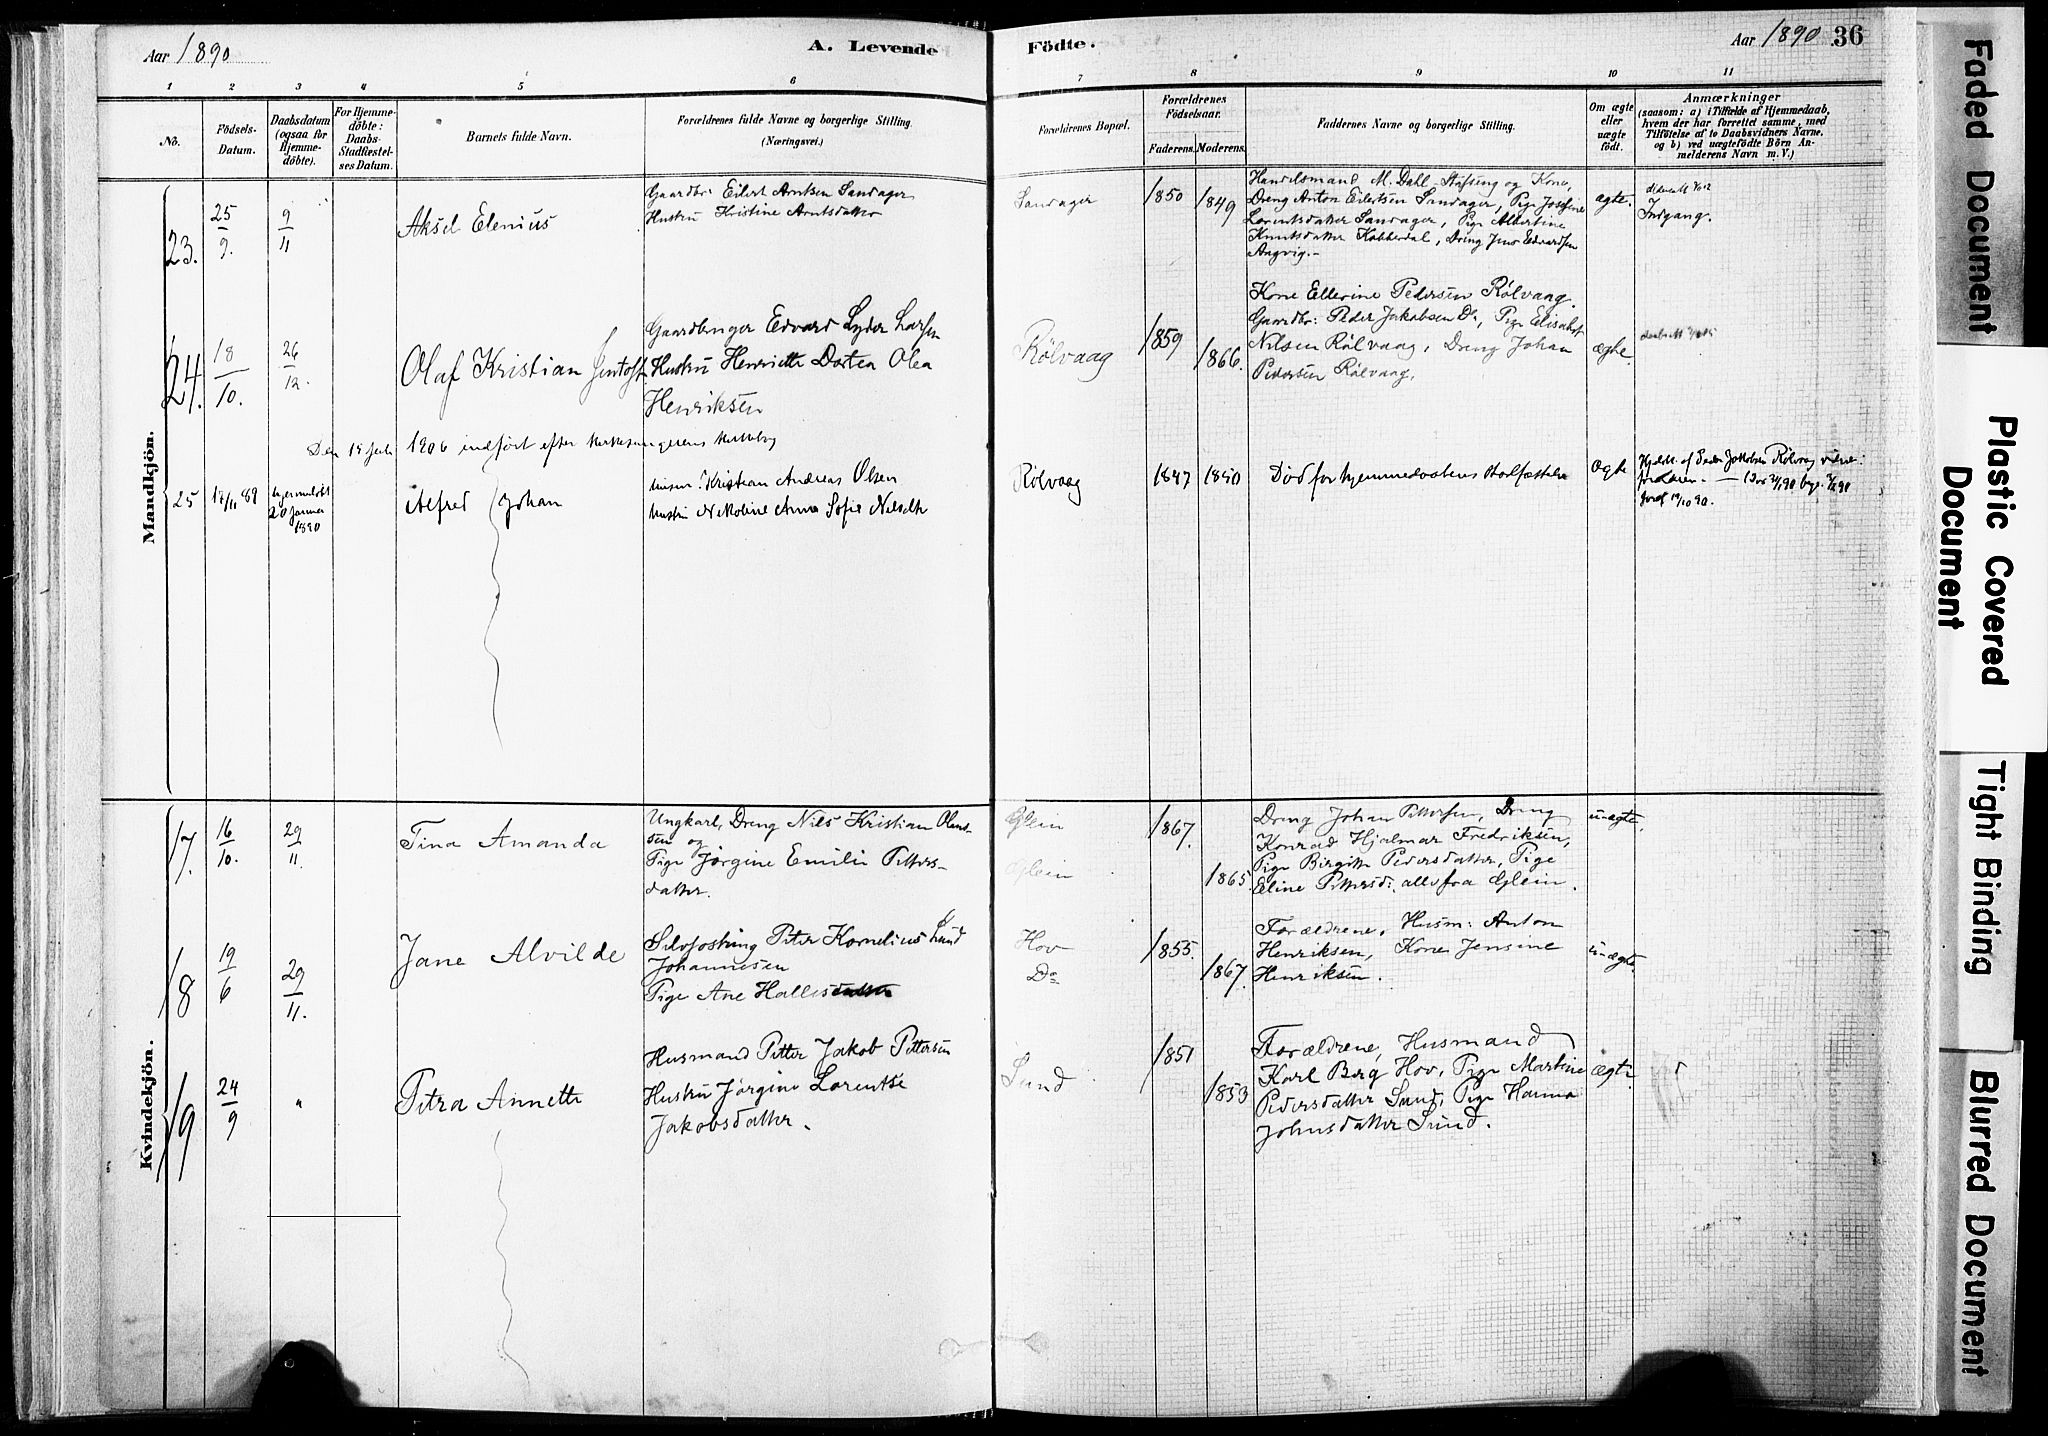 Aar 1890
A. Levende
Födte.
Aar 1890
36
1
2
3
4
5
6
7
8
9
10
11
No.
Födsels-
Datum.
Daabsdatum
(ogsaa for
Hjemme-
döbte).
For Hjemme-
döbte:
Daabs-
Stadfæstel-
ses Datum.
Barnets fulde Navn.
Forældrenes fulde Navne og borgerlige Stilling.
(Næringsvei.)
Forældrenes Bopæl.
Forældrenes
Födselsaar.
Faderens.
Moderens.
Faddernes Navne og borgerlige Stilling.
Om ægte
eller
uægte
født.
Anmærkninger
(saasom: a) i Tilfælde af Hjemmedaab,
hvem der har forrettet samme, med
Tilföielse af to Daabsvidners Navne,
og b) ved uægtefödte Börn An-
melderens Navn m. V.)
Mandkjön.
23.
25/9.
9/11
Aksel Elenius
Gaardbr: Eilert Arntsen Sandager
Hustru Kristine Arntsdatter
Sandager
1850
1849
Handelsmand M. Dahl og Kone,
Dreng Anton Eilertsen Sandager, Pige Josefine
Lorentsdatter Sandager, Pige Albertine
Knutsdatter Kobberdal, Dreng Jens Edvardsen
Angvig.-
ægte.
Indgang.
24.
18/10.
26/12.
Olaf Kristian Jentoft
Gaardbruger Edvard Lyder Larsen
Hustru Henriette Dortea Olea
Henriksen
Rölvaag
1859
1866.
Kone Ellerine Pedersen Rölvaag.
Gaardbr: Peder Jakobsen Do, Pige Elisabet
Nilsen Rölvaag, Dreng Johan
Pedersen Rölvaag.
ægte.
Den 1906 indført efter
25
89
1890
Alfred Johan
Kristian Andreas Olsen
Nikoline Anna Sofie
Rölvaag
1847
1850
Død før hjemmedaabens
ægte
af Peder Jakobsen Rölvaag
Kvindekjön.
17.
16/10.
29/11.
Tina Amanda
Ungkarl, Dreng Nils Kristian Olaus-
sen og
Pige Jørgine Emilie Petters-
datter.
Glein
Glein
1867.
1865.
Dreng Johan Pettersen, Dreng
Konrad Hjalmar Fredriksen,
Pige Birgitte Pedersdatter, Pige
Eline Pettersd: alle fra Glein.
uægte.
18
19/6
29/11.
Jane Alvilde
Selvfostring Peter Kornelius Lund
Johannesen
Pige Ane Hallesdatter
Hov
Do
1855.
1867.
Forældrene, Husm: Anton
Henriksen, Kone Jensine
Henriksen.
uægte.
19
24/9
"
Petra Annette
Husmand Petter Jakob Pettersen
Hustru Jørgine Lorentse
Jakobsdatter.
Sund
1851
1853
Forældrene, Husmand
Karl Berg Hov, Pige Martine
Pedersdatter Sund, Pige Hanna
Johnsdatter Sund.
ægte.
Faded Document
Plastic Covered
Document
Tight Binding
Blurred Document